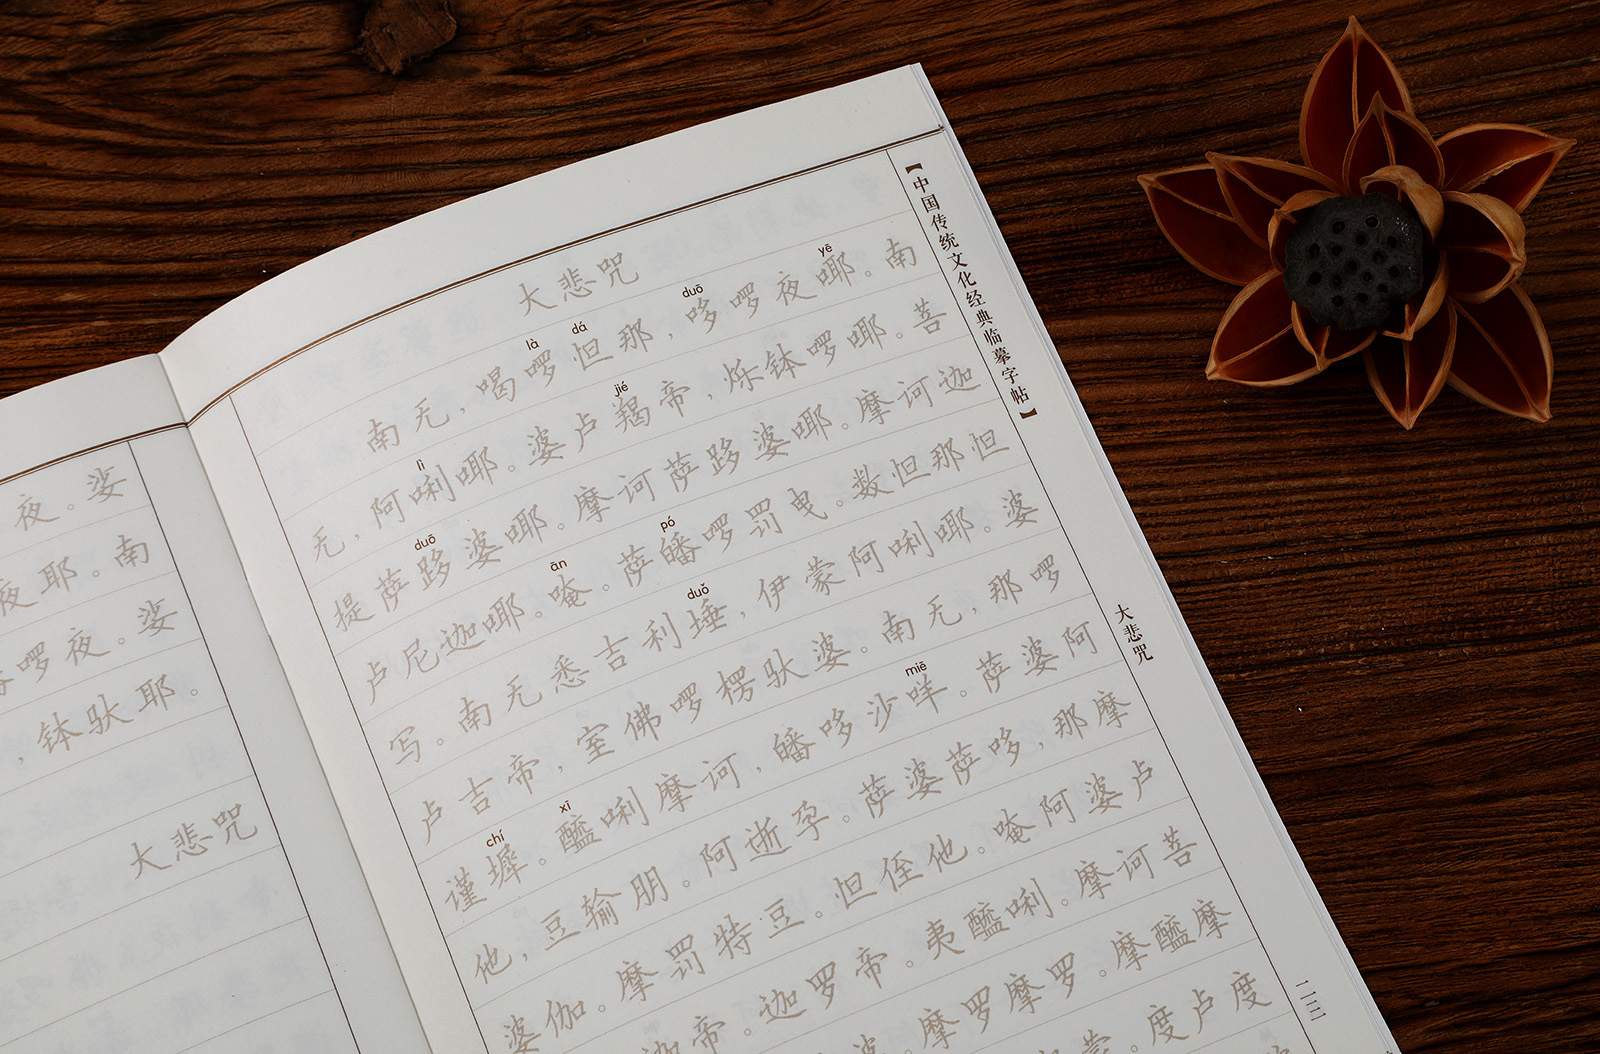 夜。娑
夜耶。南
啰夜。娑
，钵驮耶。
大悲咒
大悲咒
là dá duō yē
南无，喝啰怛那，哆啰夜耶。南
lì jié
无，阿唎耶。婆卢羯帝，烁钵啰耶。菩
duō
提萨跢婆耶。摩诃萨跢婆耶。摩诃迦
ān pó
卢尼迦耶。唵。萨皤啰罚曳。数怛那怛
duǒ
写。南无悉吉利埵，伊蒙阿唎耶。婆
卢吉帝，室佛啰楞驮婆。南无，那啰
chí xī miē
谨墀。醯唎摩诃，皤哆沙咩。萨婆阿
他，豆输朋。阿逝孕。萨婆萨哆，那摩
婆伽。摩罚特豆。怛侄他。唵阿婆卢
帝。迦罗帝。夷醯唎。摩诃菩
摩罗摩罗。摩醯摩
度卢度
【中国传统文化经典临摹字帖】
大悲咒
二三